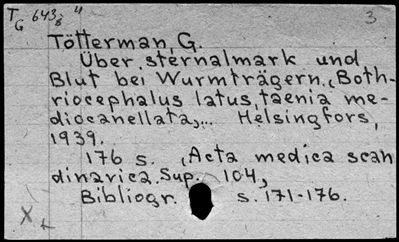 T 643 8 4 3
G
Tötterman, G.
Über sternalmark und
Blut bei Wurmträgern. (Both-
riocephalus latus, taenia me-
diocanellata,... Helsingfors,
1939.
176 s. (Acta medica scan
dinavica. Sup. 104,
Bibliogr. s. 171-176.
X